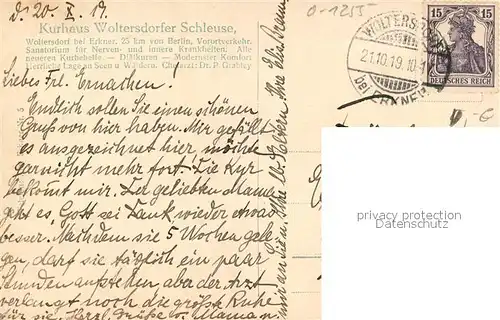 d. 20. X. 19.
0-1255
Kurhaus Woltersdorfer Schleuse,
Woltersdorf bei Erkner, 25 km von Berlin, Vorortverkehr.
Sanatorium für Nerven- und innere Krankheiten. Alle
neueren Kurbehelfe. — Diätkuren — Modernster Komfort
Herrliche Lage zu Seen u Wäldern. Chefarzt: Dr. P. Grabley
WOLTERSD
21.10.19.10-1
bei ERKNER
15 15
DEUTSCHES REICH
Liebes Frl. Ernachen!
Endlich sollen Sie einen schönen
Gruß von hier haben. Mir gefällt
es ausgezeichnet hier, möchte
garnicht mehr fort! Die Kur
bekomt mir. Der geliebten Mama
geht es, Gott sei Dank, wieder etwas
besser. Nachdem sie 5 Wochen gele-
gen, darf sie täglich ein paar
Stunden aufstehen, aba der Arzt
verlangt noch die größte Ruhe
für sie. Herzl. Grüße v. Mama u.
Ihre
privacy protection
oldthing.de